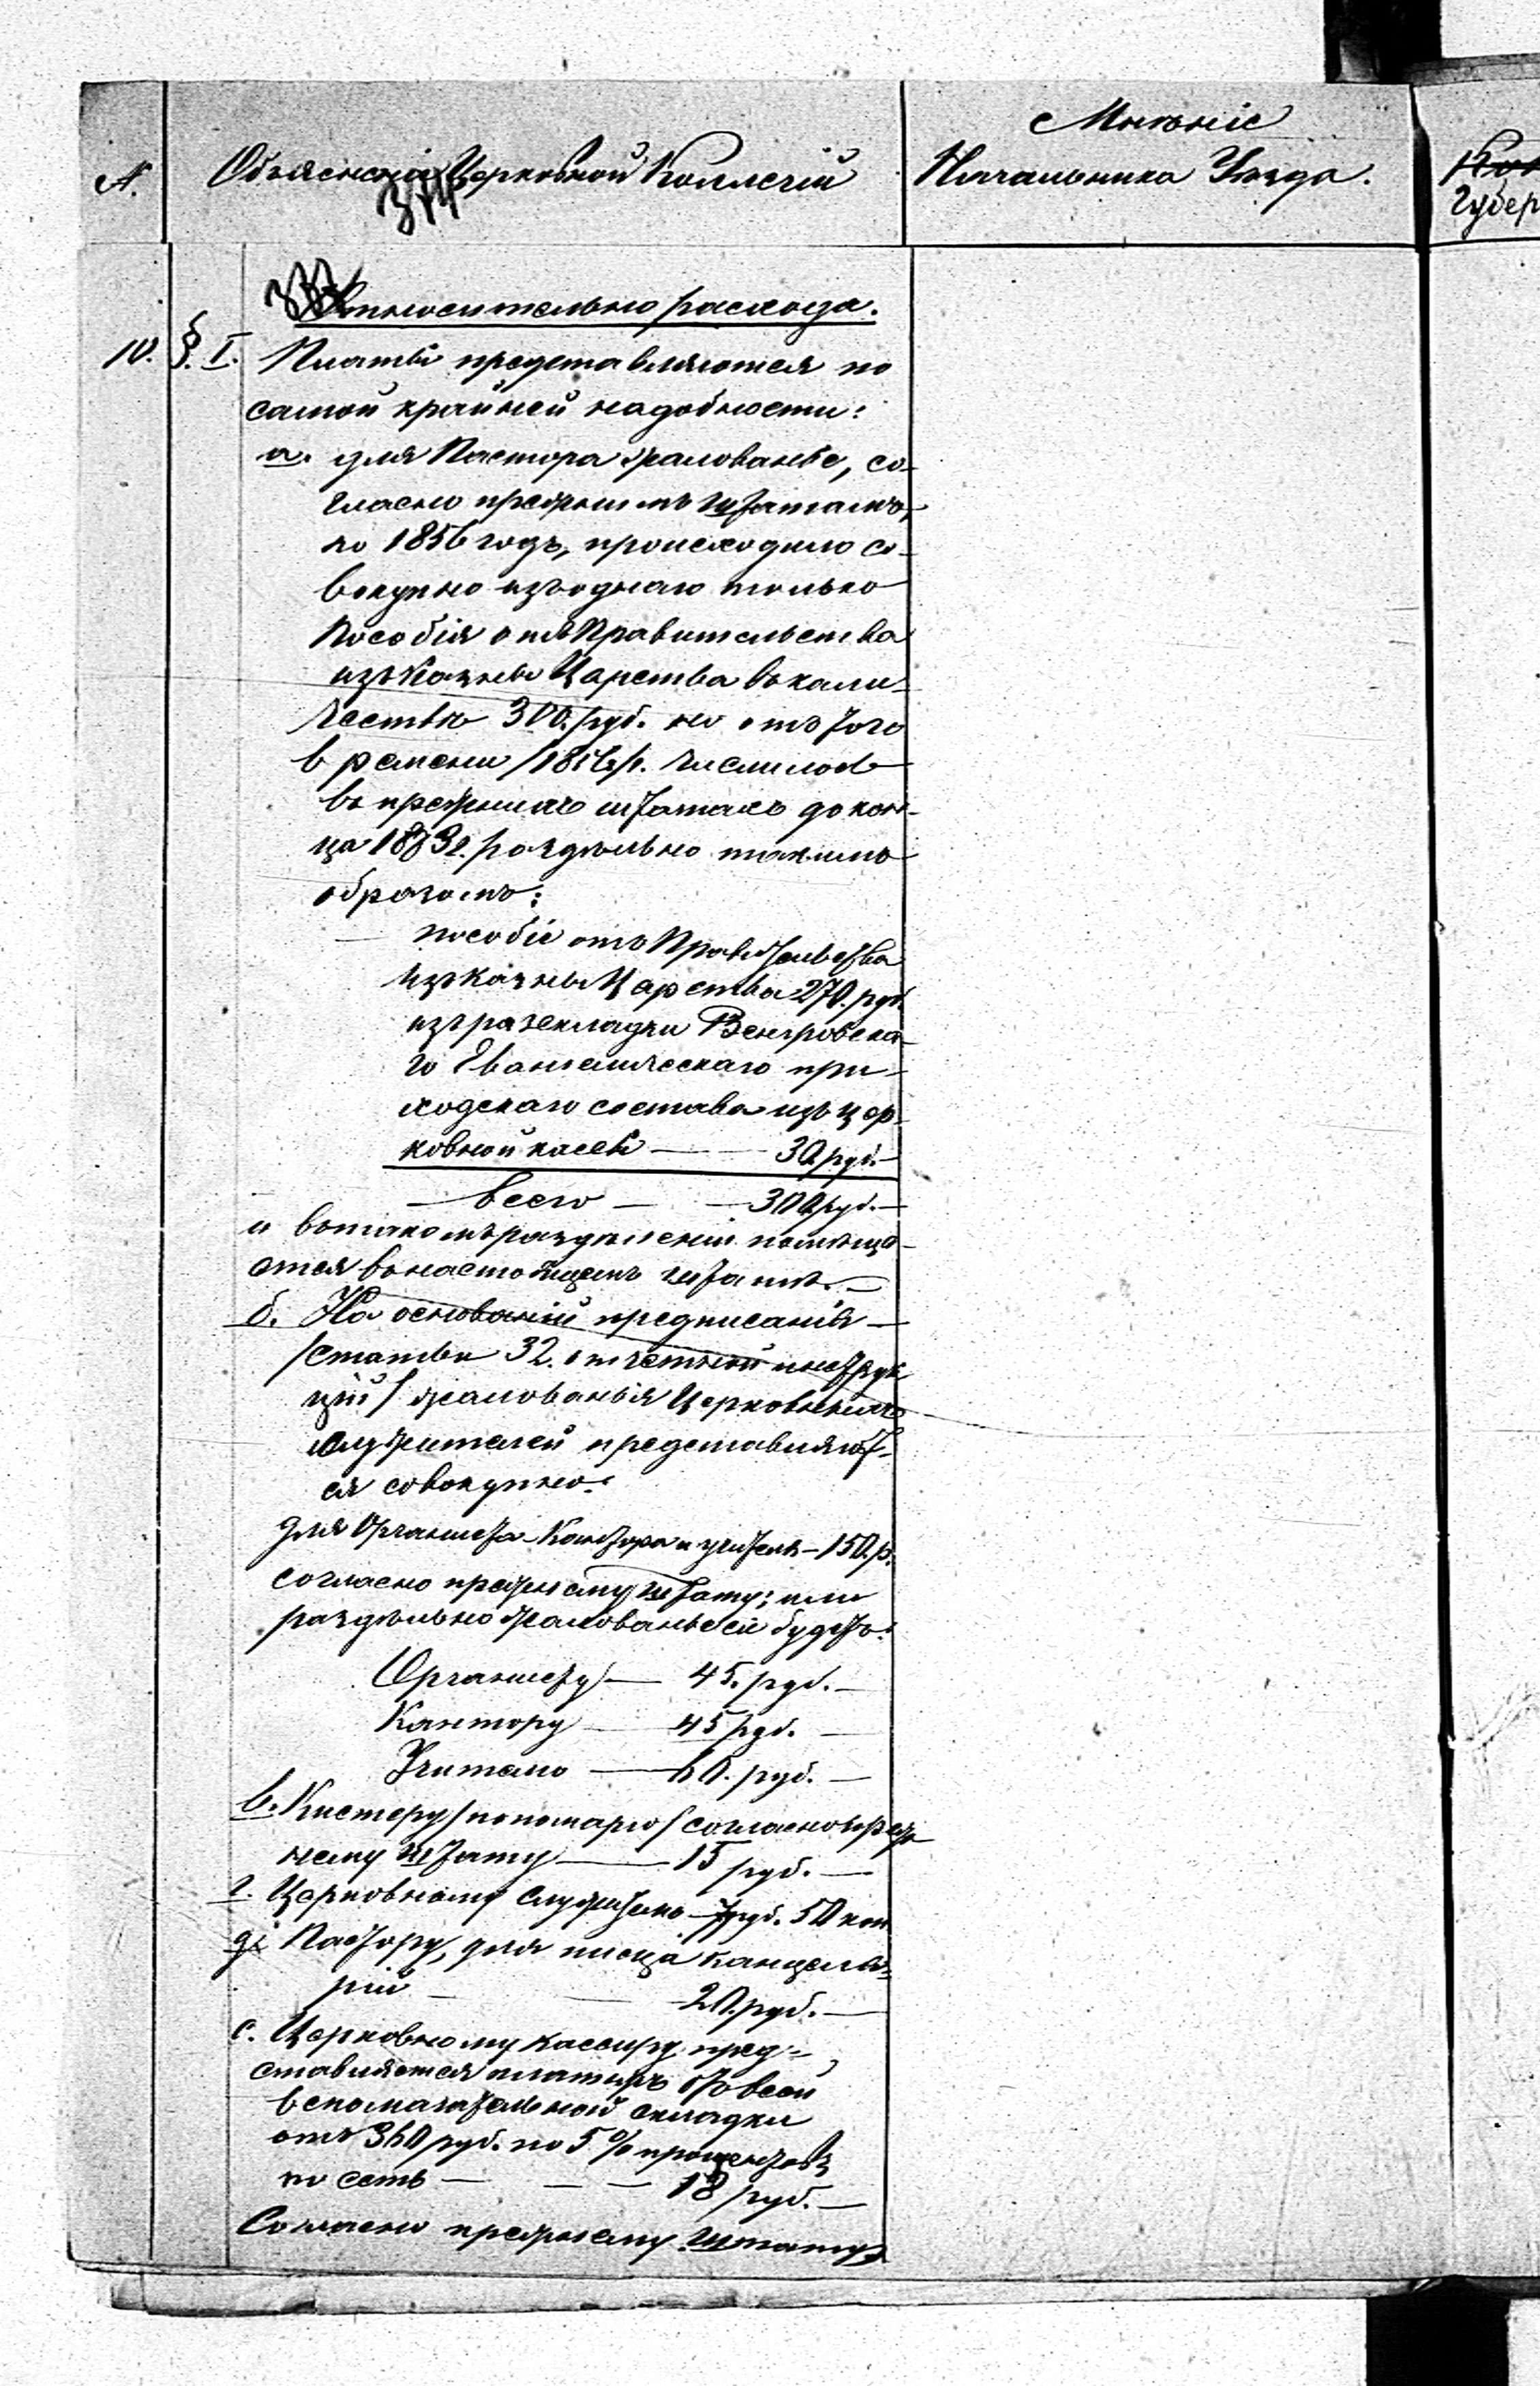 Мнѣніе
№.
Объясненія Церковной Коллегіи
Начальника Уѣзда.
Губер
Относительно расхода.
10. §. I. Платы представляются по
самой крайней надобности:
а. для Пастора жалованье, со-
гласно прежнимъ штатамъ,
по 1856 годъ, происходило со-
вокупно изъ однаго только
пособія отъ Правительства
изъ Казны Царства въ коли-
чествѣ 300. руб. но отъ того
времени /1856/. числилось
въ прежнихъ штатахъ до кон-
ца 1873г. раздѣльно такимъ
образомъ:
пособіе отъ Правительства
изъ Казны Царства 270. руб.
изъ разскладки Венгровска-
го Евангелическаго при-
ходскаго состава изъ цер-
ковной кассы — 30 руб. —
всего — — 300 руб. —
и въ такомъ раздѣленіи помѣща-
ется въ настоящемъ штатѣ. —
б. На основаніи предписанія —
/статьи 32. отчетной инструк
ціи/ жалованья Церковныхъ
служителей представляют-
ся совокупно:
для Органиста-Кантора и учителя — 150. р.
согласно прежнему штату; или
раздѣльно жалованье сіе будетъ:
Органисту — 45. руб. —
Кантору — 45 руб. —
Учителю — 60. руб. —
в. Кистеру /пономарю/ согласно преж
нему штату — 15 руб. —
г. Церковному служителю — 7 руб. 50 коп
д. Пастору, для писца канцеля-
ріи — — 20. руб. —
е. Церковному кассиру пред-
ставляется платить отъ всей
вспомагательной складки
отъ 360 руб. по 5% процентовъ
то есть — — — 18 руб. —
Согласно прежнему штату,